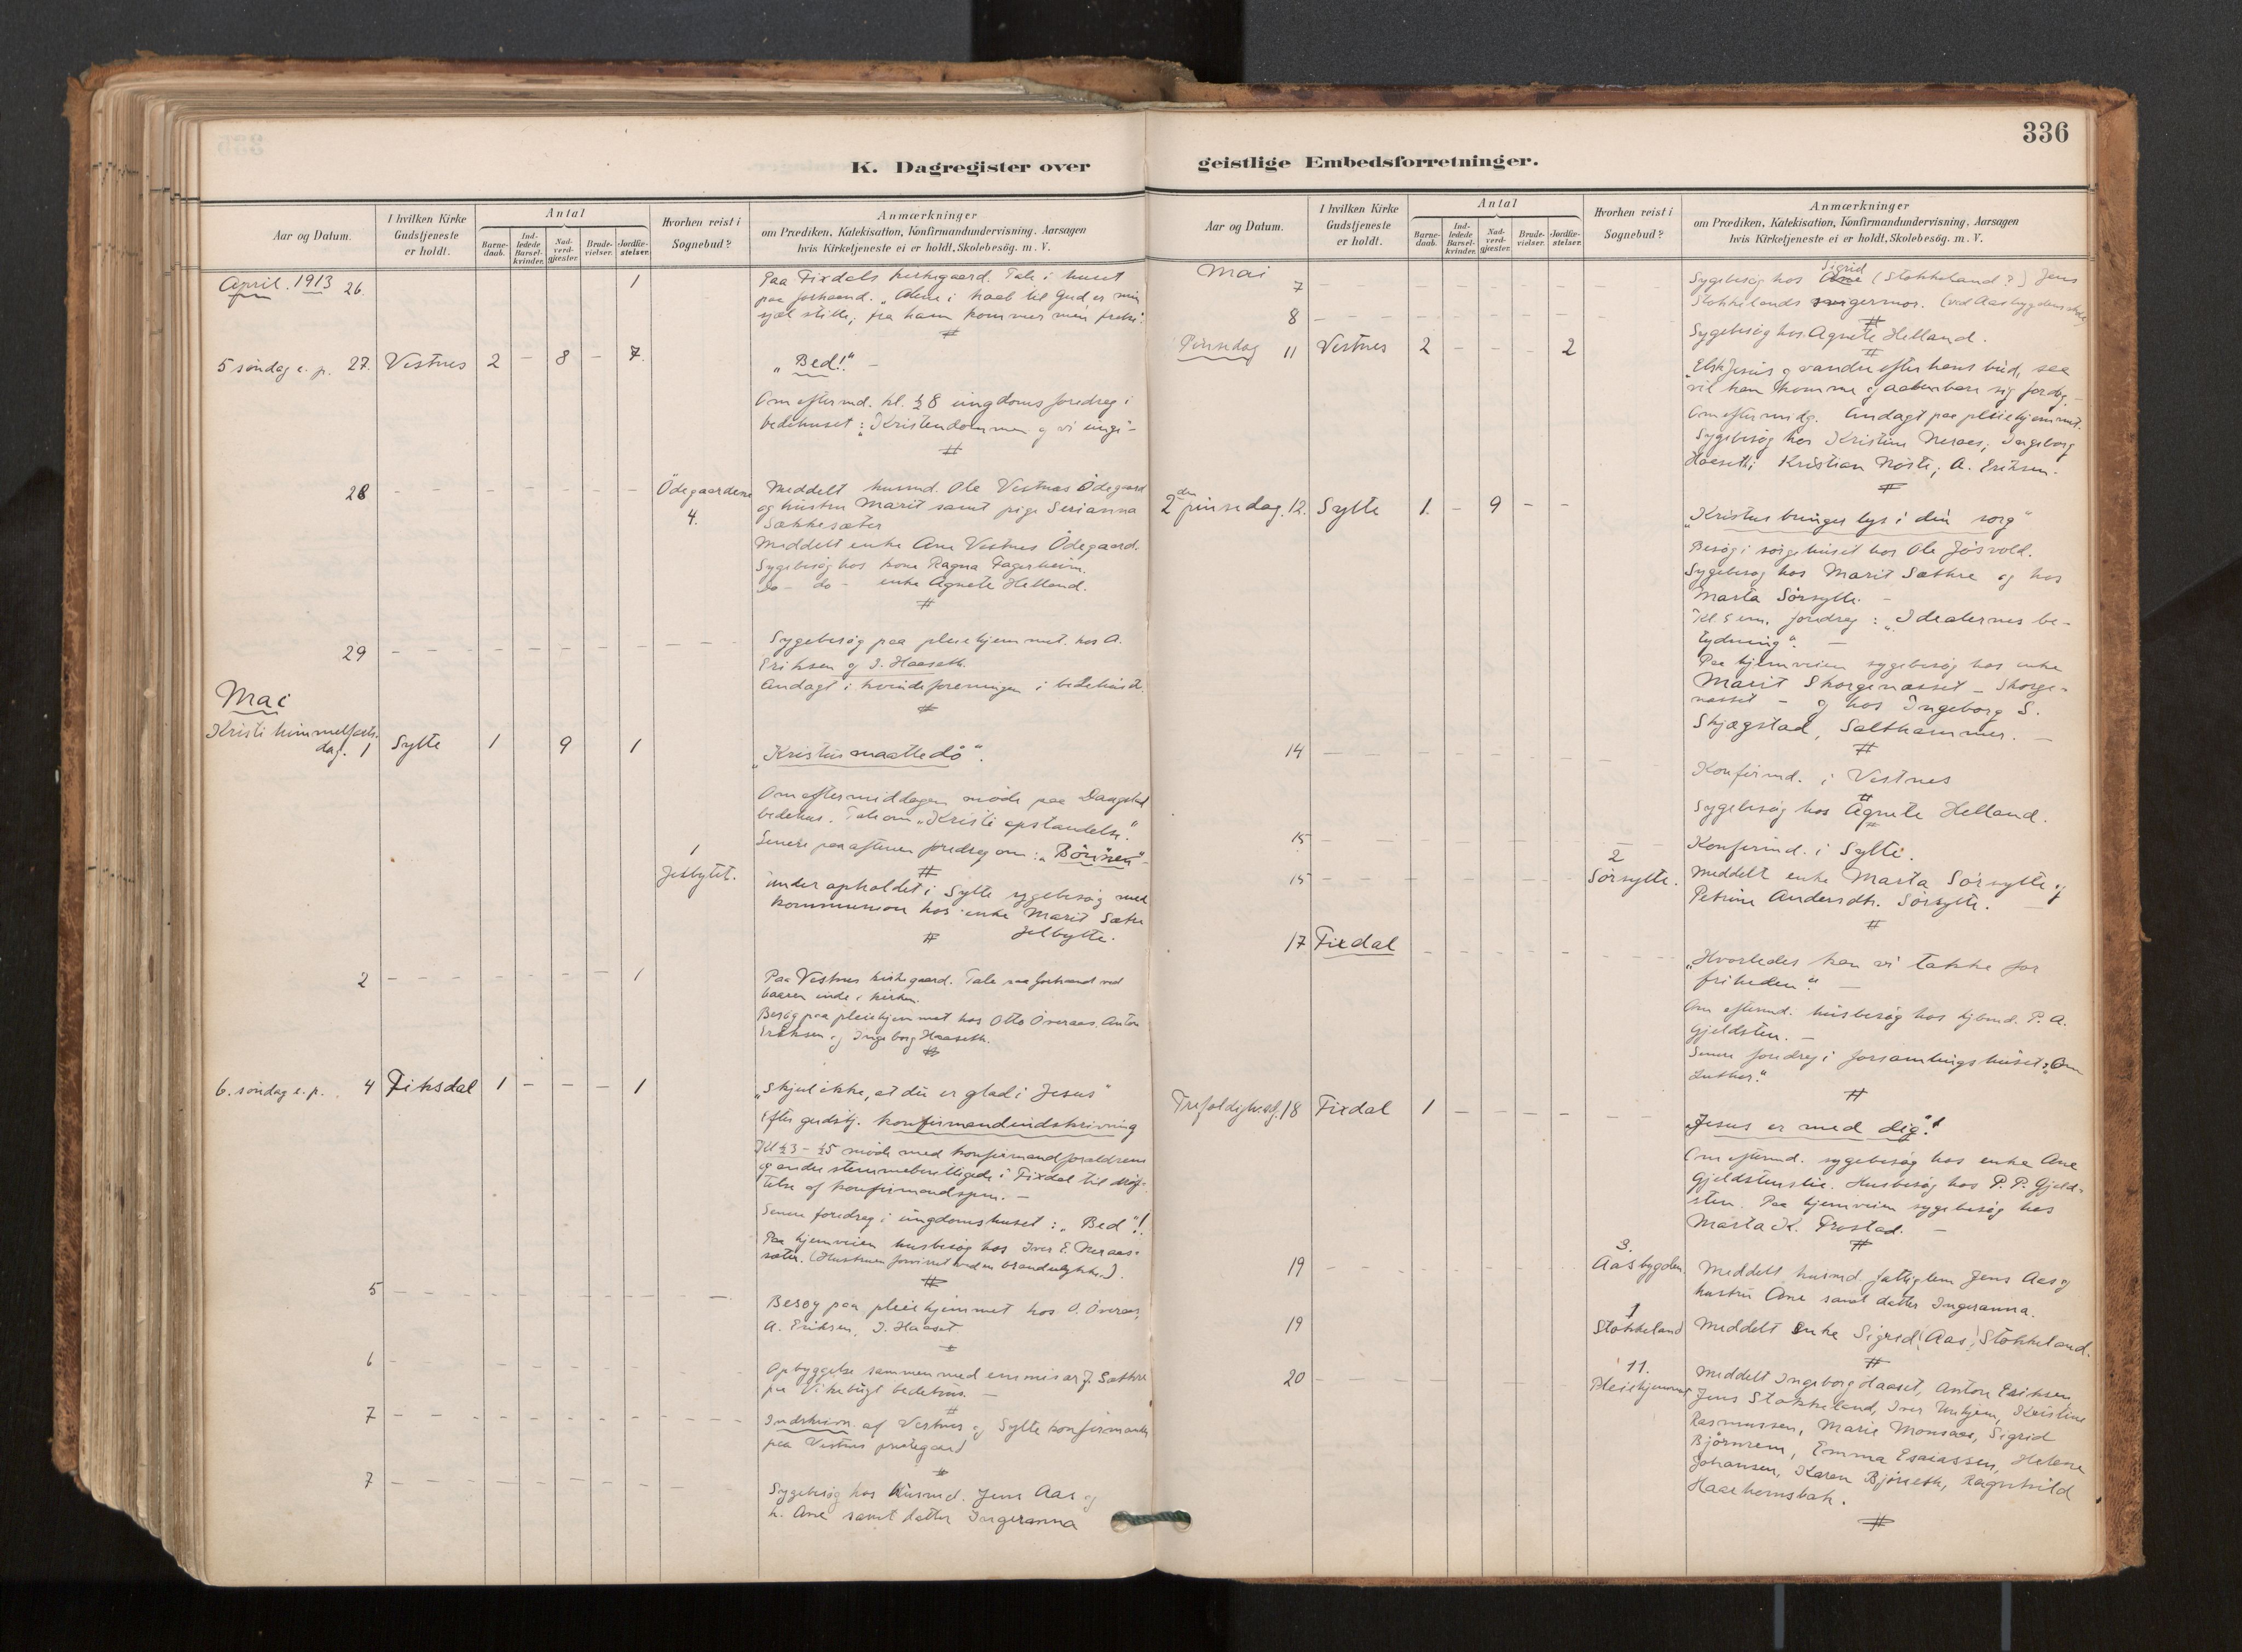 336
K. Dagregister over
geistlige Embedsforretninger.
Aar og Datum.
I hvilken Kirke Gudstjeneste er holdt.
Antal
Barne-daab.
Ind-ledede Barsel-kvinder.
Nad-verd-gjester.
Brude-vielser.
Jordfæ-stelser.
Hvorhen reist i Sognebud?
Anmærkninger
om Prædiken, Katekisation, Konfirmandundervisning, Aarsagen
hvis Kirketjeneste ei er holdt, Skolebesög. m. V.
April. 1913 26. 1
Paa Fixdals kirkegaard. Tale i huset
paa forhaand. „Alene i haab til Gud er min
sjæl stille; fra ham kommer min frelse".
5 søndag e. p. 27. Vestnes 2 – 8 – 7.
„Bed!" –
Om eftermd. kl. ½ 8 ungdomsforedrag i
bedehuset: „Kristendommen og vi unge" –
28 Ödegaardene 4.
Meddelt husmd. Ole Vestnes Ödegaard
og hustru Marit samt pige Serianna
Sækkesæter
Meddelt enke Ane Vestnes Ödegaard.
Sygebesøg hos kone Ragna Fagerheim.
do – do – enke Agnete Helland.
29
Sygebesøg paa pleiehjemmet hos A.
Eriksen og I. Haaseth.
Andagt i kvindeforeningen i bedehuset.
Mai
Kristi himmelfarts-
dag. 1 Sylte 1 9 1
„Kristus maatte dø".
Om eftermiddagen møde paa Daugstad
bedehus. Tale om „Kristi opstandelse".
Senere paa aftenen foredrag om: „Bønnen" –
1
Under opholdet i Sylte sygebesøg med
kommunion hos enke Marit Sætre
Jelbytte.
2 1
Paa Vestnes kirkegaard. Tale paa forhaand ved
baaren inde i kirken.
Besøg paa pleiehjemmet hos Otto Øveraas, Anton
Eriksen og Ingeborg Haaseth.
6. søndag e. p. 4 Fiksdal 1 – – – 1
„Skjul ikke, at du er glad i Jesus"
Efter gudstj. konfirmandindskrivning
Kl ½3 – ½5 møde med konfirmandforældrene
og andre stemmeberettigede i Fixdal til drøf-
telse af konfirmandspm. –
Senere foredrag i ungdomshuset: „Bed"!
Paa hjemveien husbesøg hos Iver E. Neraas-
sæter. (Hustruen forvirret ved en brandulykke).
5
Besøg paa pleiehjemmet hos O. Øveraas,
A. Eriksen, I. Haaset
6
Opbyggelse sammen med emmisær J. Sæthre
paa Vikebugt bedehus. –
7
Indskrivn. af Vestnes og Sylte konfirmanter
paa Vestnes prestegaard
7
Sygebesøg hos husmd. Jens Aas og
h. Ane samt datter Ingeranna
Aar og Datum.
I hvilken Kirke Gudstjeneste er holdt.
Antal
Barne-daab.
Ind-ledede Barsel-kvinder.
Nad-verd-gjester.
Brude-vielser.
Jordfæ-stelser.
Hvorhen reist i Sognebud?
Anmærkninger
om Prædiken, Katekisation, Konfirmandundervisning, Aarsagen
hvis Kirketjeneste ei er holdt, Skolebesög. m. V.
Mai
7
Sygebesøg hos Sigrid (Stokkeland?) Jens
Stokkelands svigermor. (ved Aasbygdens skole)
8
Sygebesøg hos Agnete Helland.
Pinsedag 11 Vestnes 2 – – – 2
„Elsk Jesus og vandre efter hans bud, saa
vil han komme og aabenbare sig for dig. –
Om eftermidg. Andagt paa pleiehjemmet.
Sygebesøg hos Kristine Neraas, Ingeborg
Haaseth; Kristian Nøste; A. Eriksen.
2den pinsedag. 12. Sylte 1. – 9 – –
„Kristus bringer lys i din sorg"
Besøg i sørgehuset hos Ole Jøsvold.
Sygebesøg hos Marit Sæthre og hos
Marta Sørsylte. –
Kl. 5 em. foredrag: „Idealernes be-
tydning". –
Paa hjemveien sygebesøg hos enke
Marit Skorgenæsset – Skorge-
næsset – og hos Ingeborg S.
Skjægstad, Salthammer. –
14
Konfirmd. i Vestnes
Sygebesøg hos Agnete Helland.
15
Konfirmd. i Sylte.
15 2 Sørsylte.
Meddelt enke Marta Sørsylte og
Petrine Andersdtr. Sørsylte. –
17 Fixdal
„Hvorledes kan vi takke for
friheden". –
Om eftermd. husbesøg hos P. A.
Gjeldsten. –
Senere foredrag i forsamlingshuset: „Om
Luther."
Trefoldighedsd. 18 Fixdal 1
„Jesus er med dig"!
Om eftermd. sygebesøg hos enke Ane
Gjeldstenslie. Husbesøg hos P. P. Gjeld-
sten. Paa hjemveien sygebesøg hos
Marta K. Frostad. –
19 3. Aasbygden
Meddelt husmd. fattiglem Jens Aas og
hustru Ane samt datter Ingeranna.
19 1 Stokkeland
Meddelt enke Sigrid (Aas) Stokkeland.
20 11. Pleiehjemmet
Meddelt Ingeborg Haaset, Anton Eriksen
Jens Stokkeland, Iver Unhjem, Kristine
Rasmussen, Marie Monsaas, Sigrid
Bjørnrem, Emma Esaiassen, Helene
Johansen, Karen Bjørseth, Ragnhild
Haaskornsbak.